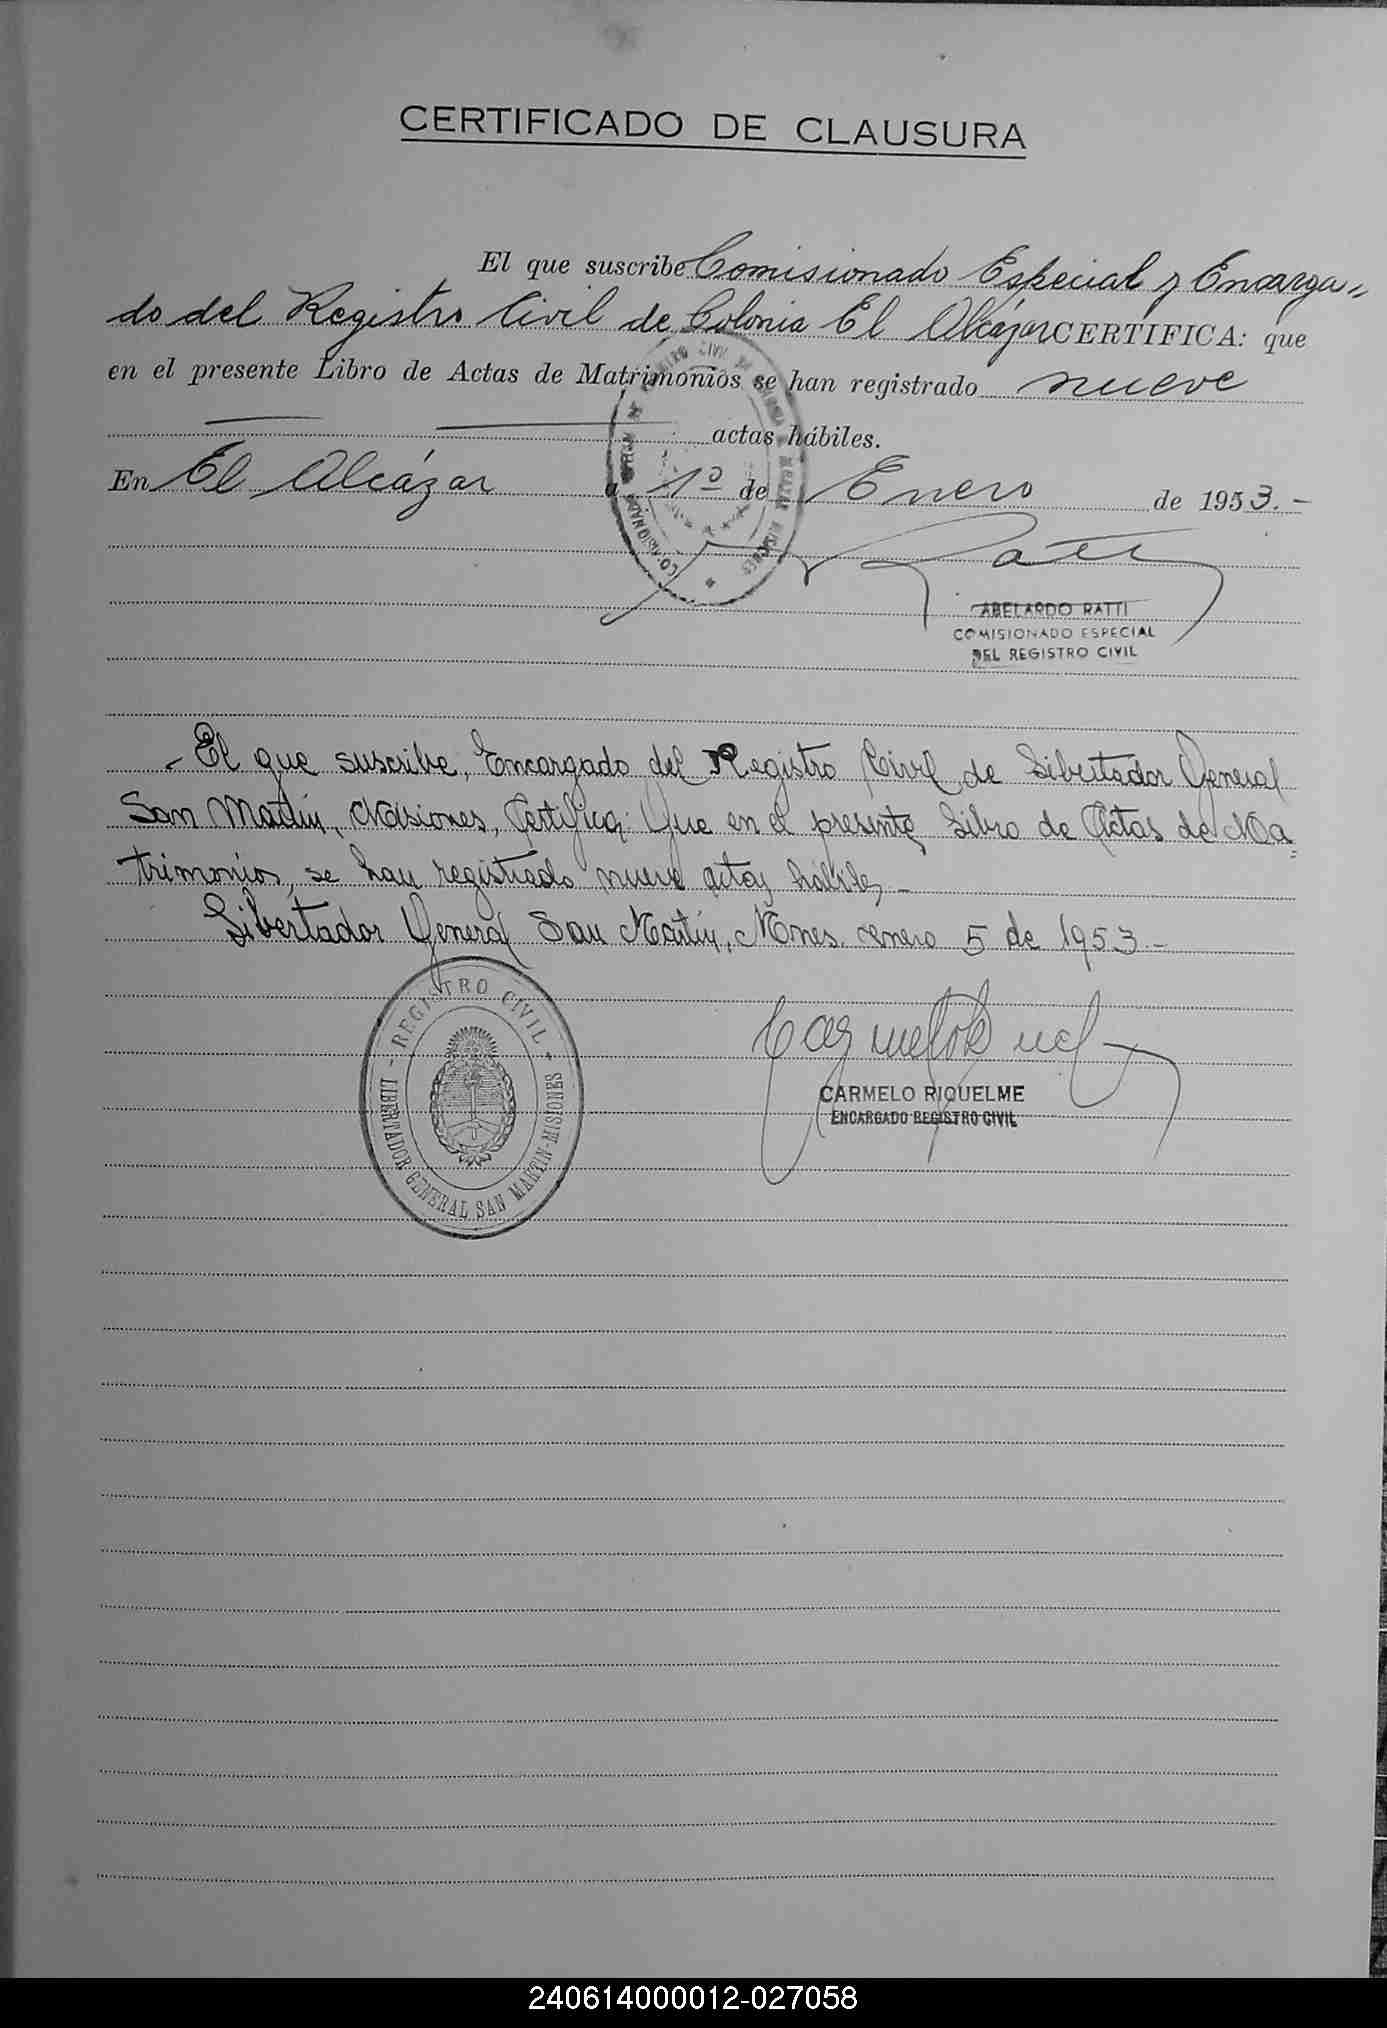 CERTIFICADO DE CLAUSURA
El que suscribe Comisionado Especial y Encarga„
do del Registro Civil de Colonia El Alcázar CERTIFICA: que
en el presente Libro de Actas de Matrimonios se han registrado nueve
actas hábiles.
En El Alcázar a 1º de Enero de 1953.-
Ratti
ABELARDO RATTI
COMISIONADO ESPECIAL
DEL REGISTRO CIVIL
- El que suscribe, Encargado del Registro Civil de Libertador General
San Martín, Misiones, Certifica: Que en el presente Libro de Actas de Ma=
trimonios, se han registrado nueve actas hábiles.-
Libertador General San Martín, Mnes. enero 5 de 1953.-
- REGISTRO CIVIL -
LIBERTADOR GENERAL SAN MARTIN-MISIONES
CARMELO RIQUELME
ENCARGADO REGISTRO CIVIL
240614000012-027058